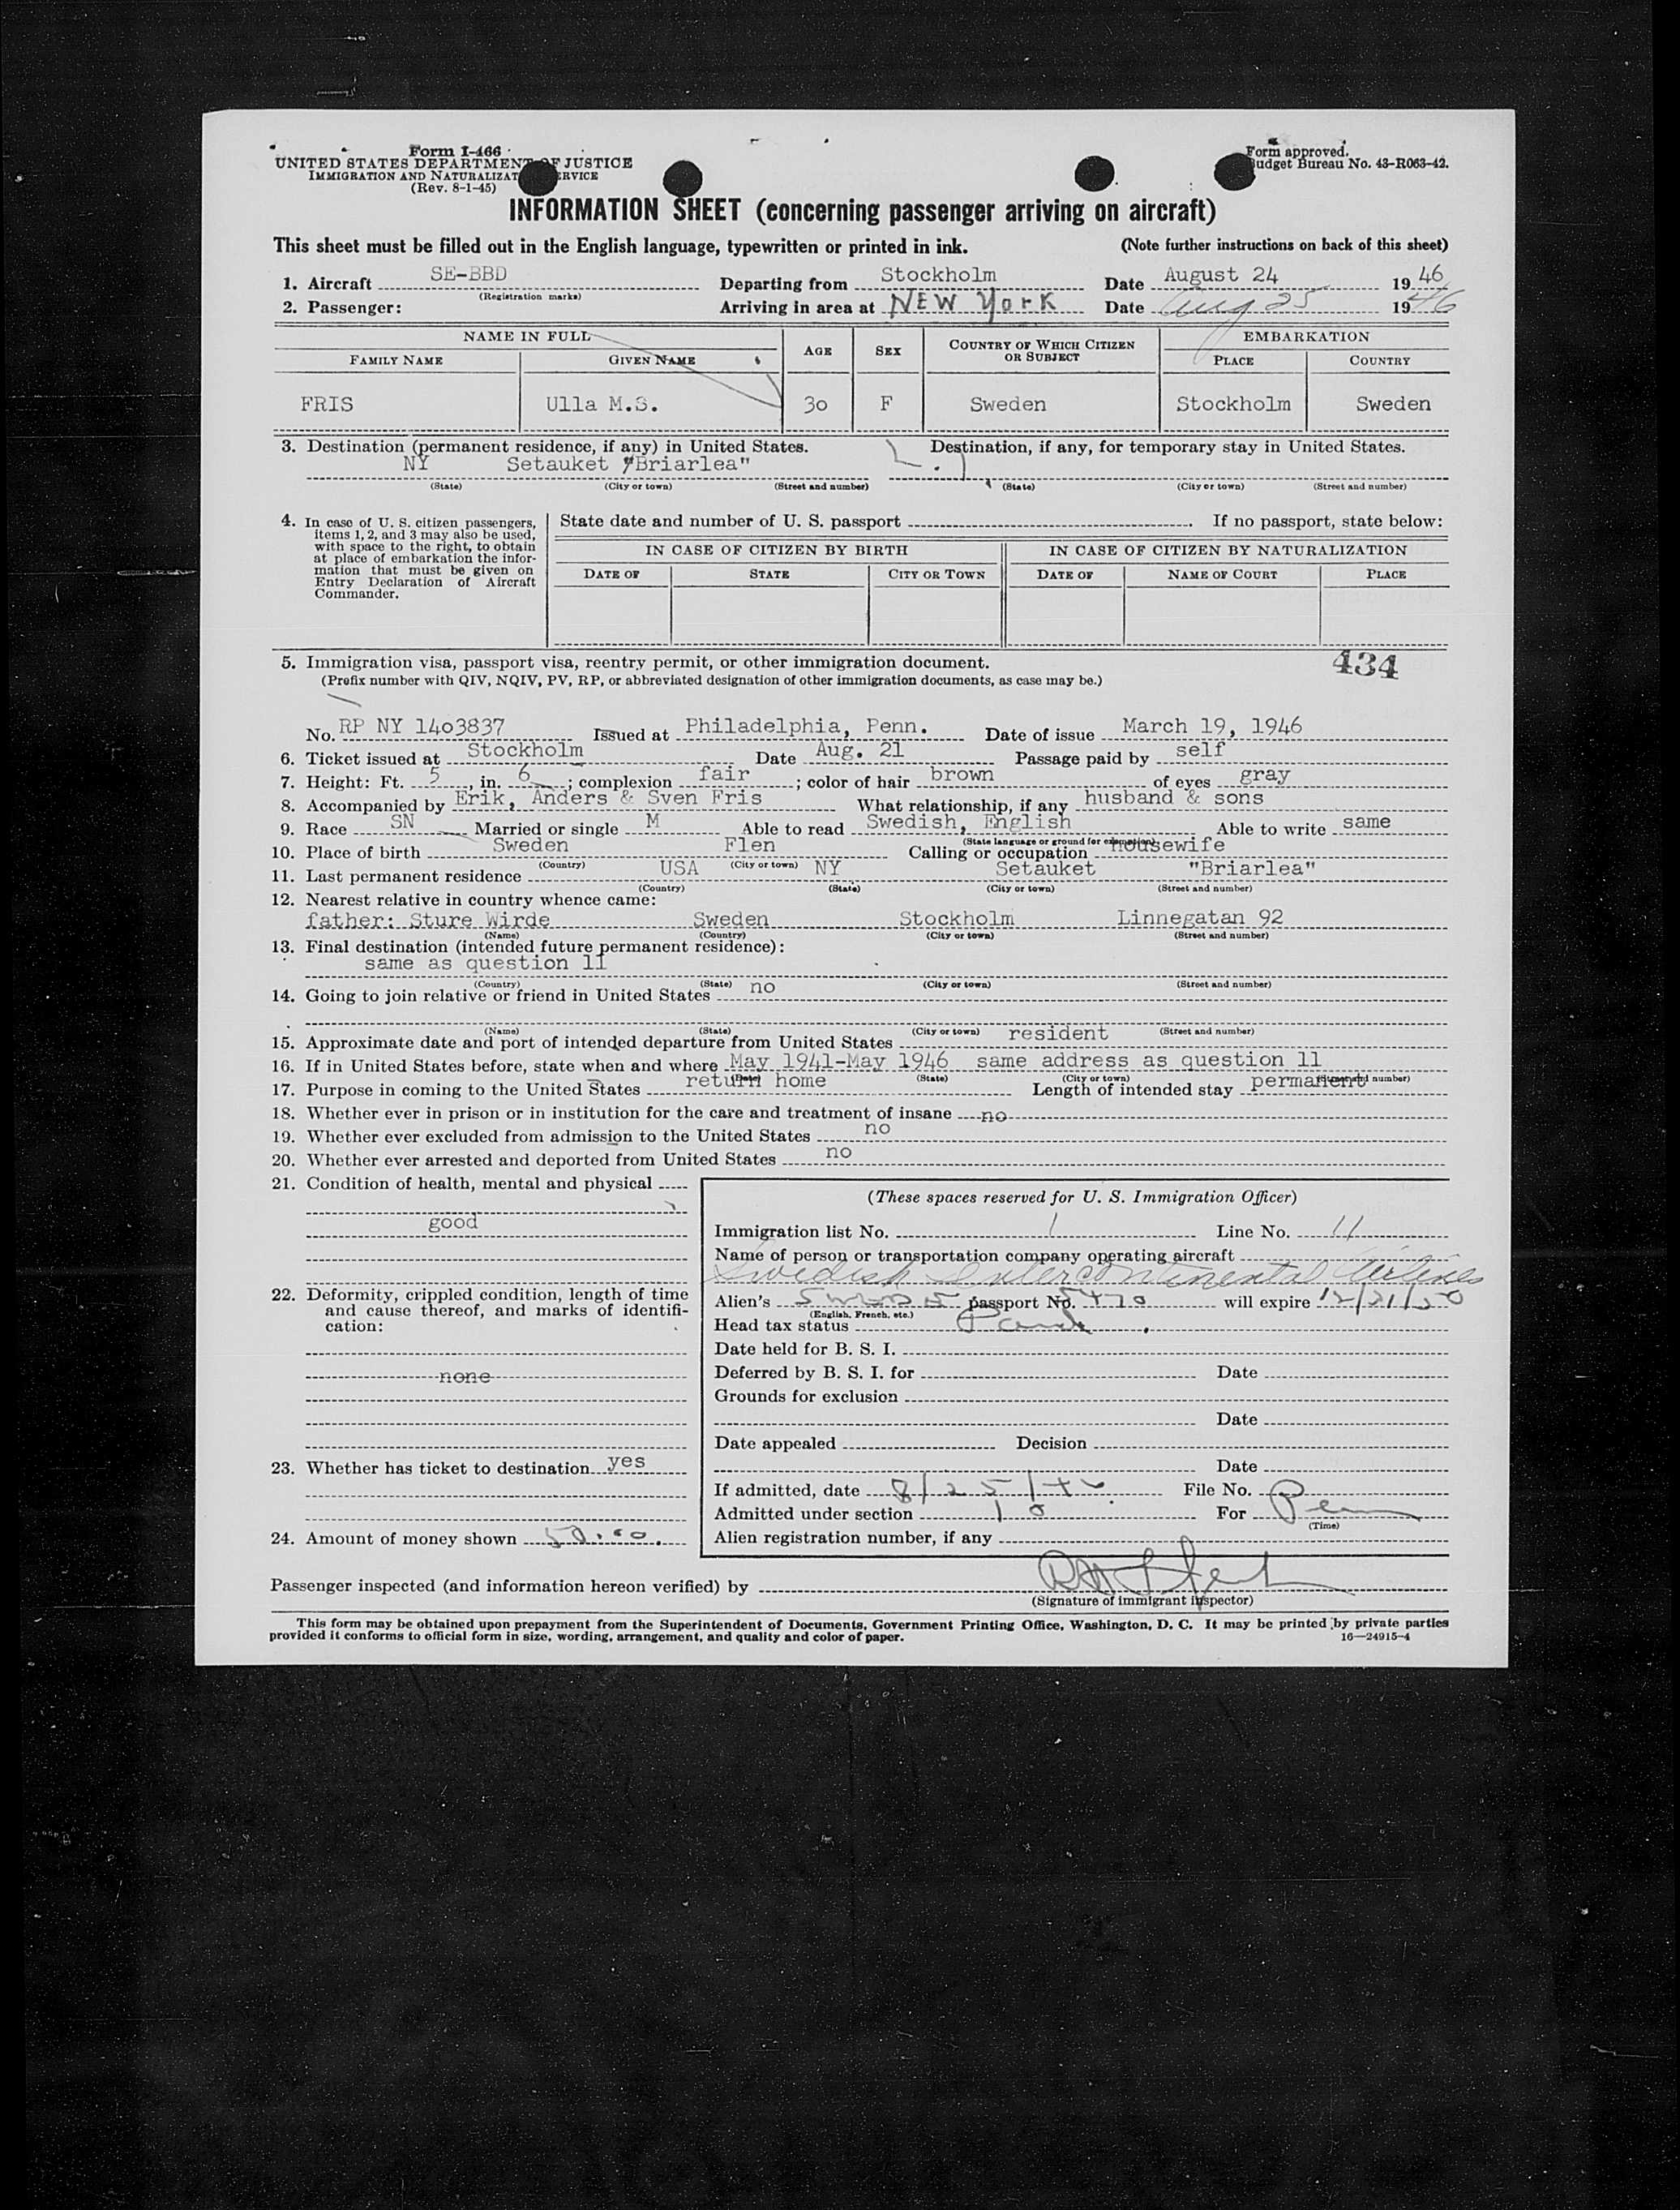 Form I-466
UNITED STATES DEPARTMENT OF JUSTICE
IMMIGRATION AND NATURALIZATION SERVICE
(Rev. 8-1-45)
Form approved.
Budget Bureau No. 43-R063-42.
INFORMATION SHEET (concerning passenger arriving on aircraft)
This sheet must be filled out in the English language, typewritten or printed in ink. (Note further instructions on back of this sheet)
1. Aircraft SE-BBD Departing from Stockholm Date August 24 1946
(Registration marks)
2. Passenger: Arriving in area at NEW York Date Aug 25 1946
NAME IN FULL AGE SEX COUNTRY OF WHICH CITIZEN OR SUBJECT EMBARKATION
FAMILY NAME GIVEN NAME PLACE COUNTRY
FRIS Ulla M.S. 3o F Sweden Stockholm Sweden
3. Destination (permanent residence, if any) in United States. Destination, if any, for temporary stay in United States.
NY Setauket "Briarlea"
(State) (City or town) (Street and number) (State) (City or town) (Street and number)
4. In case of U. S. citizen passengers, items 1, 2, and 3 may also be used, with space to the right, to obtain at place of embarkation the information that must be given on Entry Declaration of Aircraft Commander.
State date and number of U. S. passport . If no passport, state below:
IN CASE OF CITIZEN BY BIRTH IN CASE OF CITIZEN BY NATURALIZATION
DATE OF STATE CITY OR TOWN DATE OF NAME OF COURT PLACE
5. Immigration visa, passport visa, reentry permit, or other immigration document. 434
(Prefix number with QIV, NQIV, PV, RP, or abbreviated designation of other immigration documents, as case may be.)
No. RP NY 14o3837 Issued at Philadelphia, Penn. Date of issue March 19, 1946
6. Ticket issued at Stockholm Date Aug. 21 Passage paid by self
7. Height: Ft. 5, in. 6; complexion fair; color of hair brown of eyes gray
8. Accompanied by Erik, Anders & Sven Fris What relationship, if any husband & sons
9. Race SN Married or single M Able to read Swedish, English Able to write same
(State language or ground for exemption)
10. Place of birth Sweden Flen Calling or occupation housewife
(Country) (City or town)
11. Last permanent residence USA NY Setauket "Briarlea"
(Country) (State) (City or town) (Street and number)
12. Nearest relative in country whence came:
father: Sture Wirde Sweden Stockholm Linnegatan 92
(Name) (Country) (City or town) (Street and number)
13. Final destination (intended future permanent residence):
same as question 11
(Country) (State) (City or town) (Street and number)
14. Going to join relative or friend in United States no
(Name) (State) (City or town) (Street and number)
15. Approximate date and port of intended departure from United States resident
16. If in United States before, state when and where May 1941-May 1946 same address as question 11
(Date) (State) (City or town) (Street and number)
17. Purpose in coming to the United States return home Length of intended stay permanent
18. Whether ever in prison or in institution for the care and treatment of insane no
19. Whether ever excluded from admission to the United States no
20. Whether ever arrested and deported from United States no
21. Condition of health, mental and physical
good
22. Deformity, crippled condition, length of time and cause thereof, and marks of identification:
none
23. Whether has ticket to destination yes
24. Amount of money shown 50.00.
(These spaces reserved for U. S. Immigration Officer)
Immigration list No. 1 Line No. 11
Name of person or transportation company operating aircraft
Swedish Intercontinental Airlines
Alien's passport No. 5470 will expire 12/31/50
(English, French, etc.)
Head tax status
Date held for B. S. I.
Deferred by B. S. I. for Date
Grounds for exclusion
Date
Date appealed Decision
Date
If admitted, date 8/25/46. File No.
Admitted under section 10 For Perm
(Time)
Alien registration number, if any
Passenger inspected (and information hereon verified) by
(Signature of immigrant inspector)
This form may be obtained upon prepayment from the Superintendent of Documents, Government Printing Office, Washington, D. C. It may be printed by private parties
provided it conforms to official form in size, wording, arrangement, and quality and color of paper. 16—24915-4